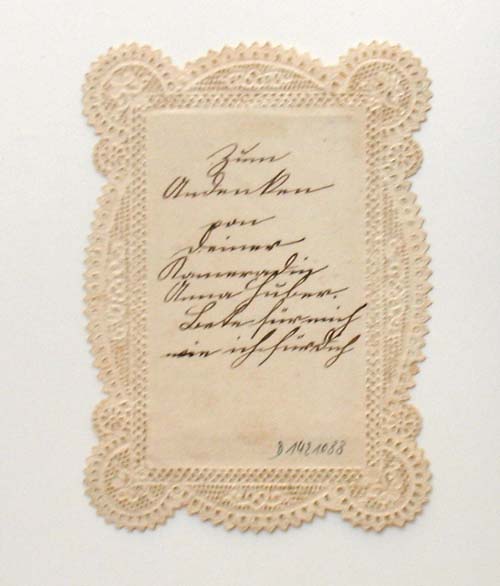 Zum
Andenken
von
deiner
Kameradin
Anna Huber.
Bete für mich
wie ich für Dich
D1421088